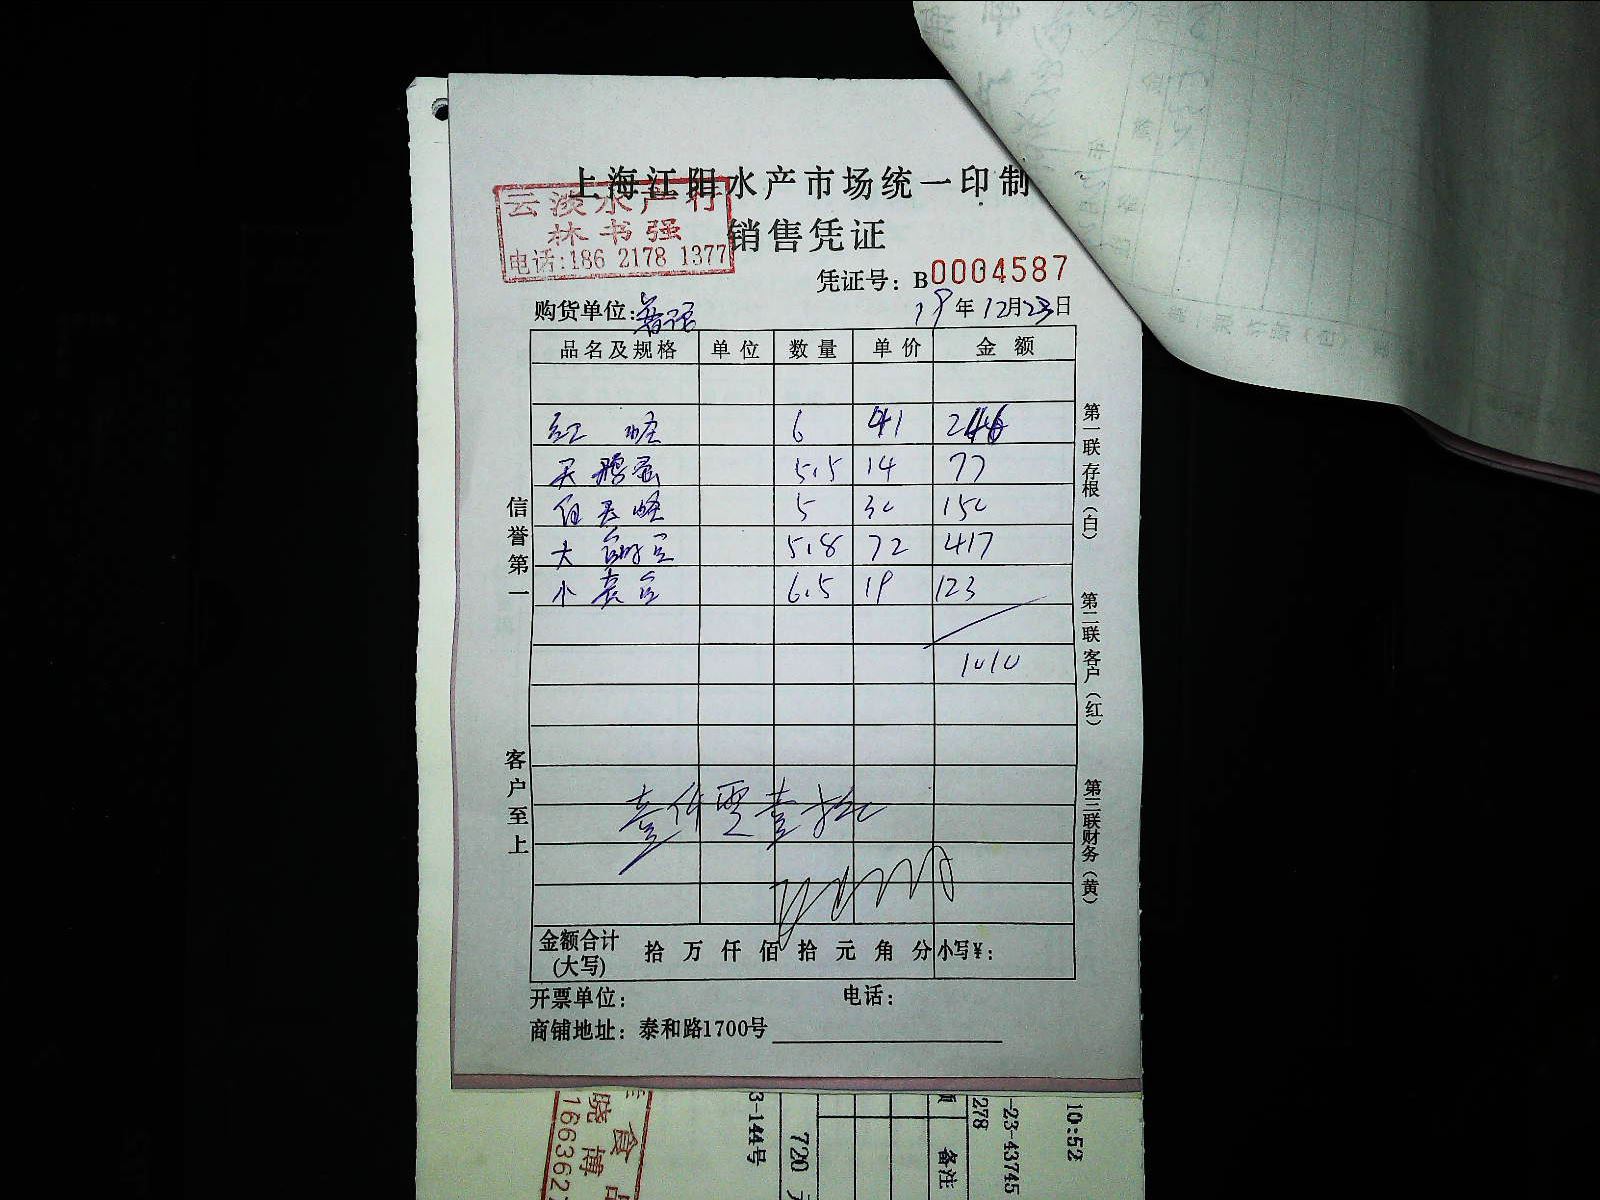 上海江阳水产市场统一印制
云淡水产行
林书强
电话:186 2178 1377
销售凭证
凭证号: B0004587
购货单位:
19年12月23日
品名及规格 单位 数量 单价 金额
红 6 41 246
天鹅蛋 5.5 14 77
5 30 150
大 5.8 72 417
小 6.5 19 123
1010
壹仟零壹拾
金额合计(大写) 拾 万 仟 佰 拾 元 角 分 小写¥:
开票单位: 电话:
商铺地址: 泰和路1700号
信誉第一
客户至上
第一联存根(白)
第二联客户(红)
第三联财务(黄)
3-144号
720
备注
278
-23-43745
10:52
食
晓博
1663627